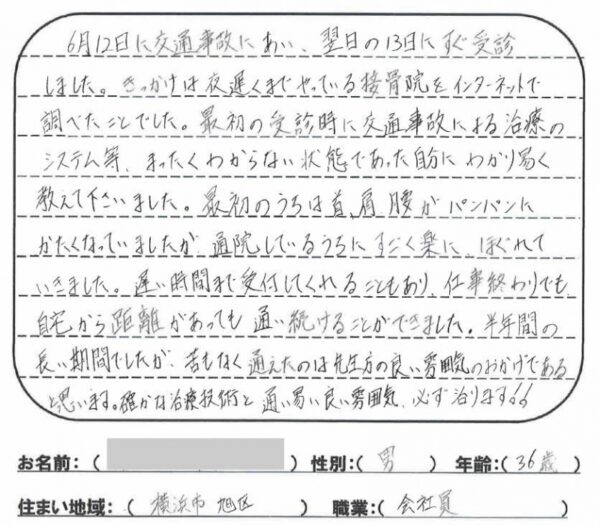 6月12日に交通事故にあい、翌日の13日にすぐ受診
しました。きっかけは夜遅くまでやっている接骨院をインターネットで
調べたことでした。最初の受診時に交通事故による治療の
システム等、まったくわからない状態であった自分にわかり易く
教えて下さいました。最初のうちは首、肩、腰がパンパンに
かたくなっていましたが、通院しているうちにすごく楽に、ほぐれて
いきました。遅い時間まで受付してくれることもあり、仕事終わりでも
自宅から距離があっても通い続けることができました。半年間の
長い期間でしたが、苦もなく通えたのは先生方の良い雰囲気のおかげである
と思います。確かな治療技術と通い易い良い雰囲気、必ず治ります!!
お名前:( ) 性別:( 男 ) 年齢:( 36歳 )
住まい地域:( 横浜市 旭区 ) 職業:( 会社員 )